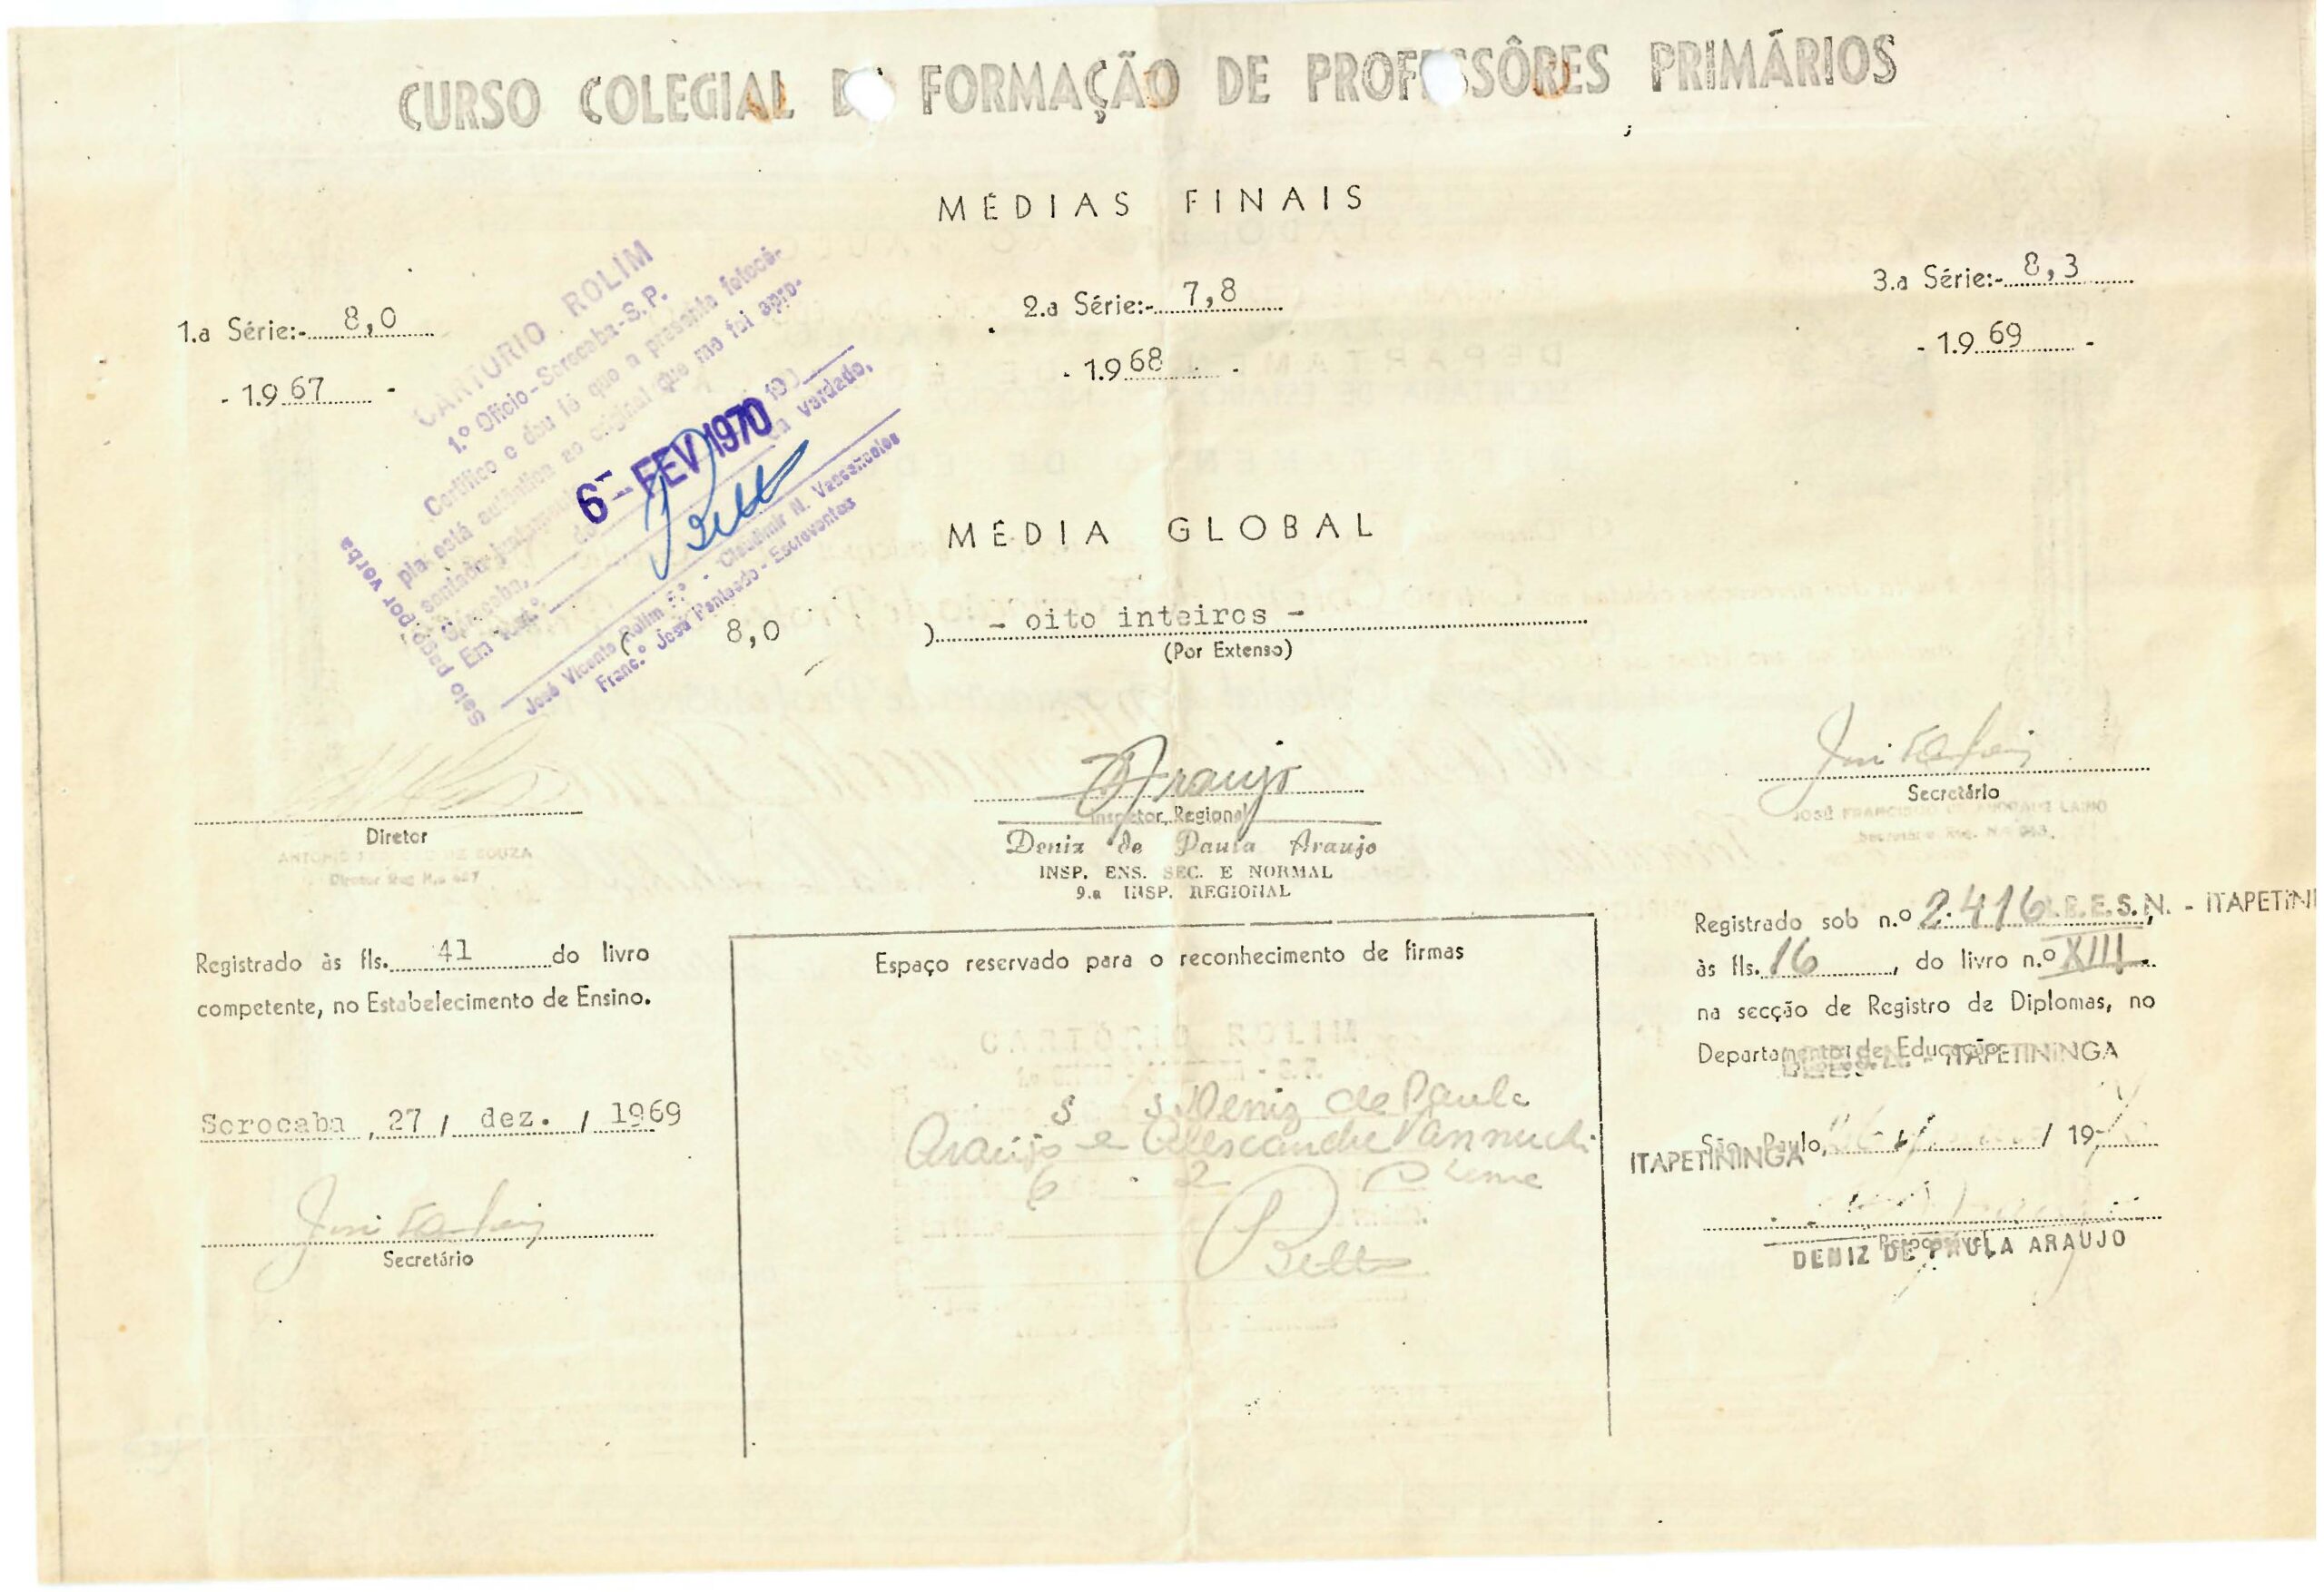 CURSO COLEGIAL DE FORMAÇÃO DE PROFESSÔRES PRIMÁRIOS
MÉDIAS FINAIS
1.a Série:- 8,0
- 1.9 67 -
2.a Série:- 7,8
- 1.9 68 -
3.a Série:- 8,3
- 1.9 69 -
CARTORIO ROLIM
1.º Ofício - Sorocaba - S.P.
Certifico e dou fé que a presente fotocó-
pia está autêntica ao original que me foi apre-
sentado
Sorocaba, de 6 - FEV 1970 19
Em test.º da verdade.
José Vicente Rolim F.º - Claudimir N. Vasconcelos
Franc.º José Penteado - Escreventes
Selo pago por verba
MÉDIA GLOBAL
( 8,0 ) - oito inteiros -
(Por Extenso)
Diretor
ANTONIO DE SOUZA
Diretor Reg N.o
Araujo
Inspetor Regional
Deniz de Paula Araujo
INSP. ENS. SEC. E NORMAL
9.a INSP. REGIONAL
Secretário
JOSÉ FRANCISCO LAINO
Secretário Reg. N.o
Registrado às fls. 41 do livro
competente, no Estabelecimento de Ensino.
Sorocaba, 27 / dez. / 1969
Secretário
Espaço reservado para o reconhecimento de firmas
CARTÓRIO ROLIM
s s Deniz de Paula
Araújo e Alescandre Vannuchi
6 . 2 Leme
Registrado sob n.º 2.416 E.S.N. - ITAPETINI
às fls. 16, do livro n.º XIII
na secção de Registro de Diplomas, no
Departamento de Educação
ITAPETININGA
São Paulo, / 19
ITAPETININGA
Responsável
DENIZ DE PAULA ARAUJO